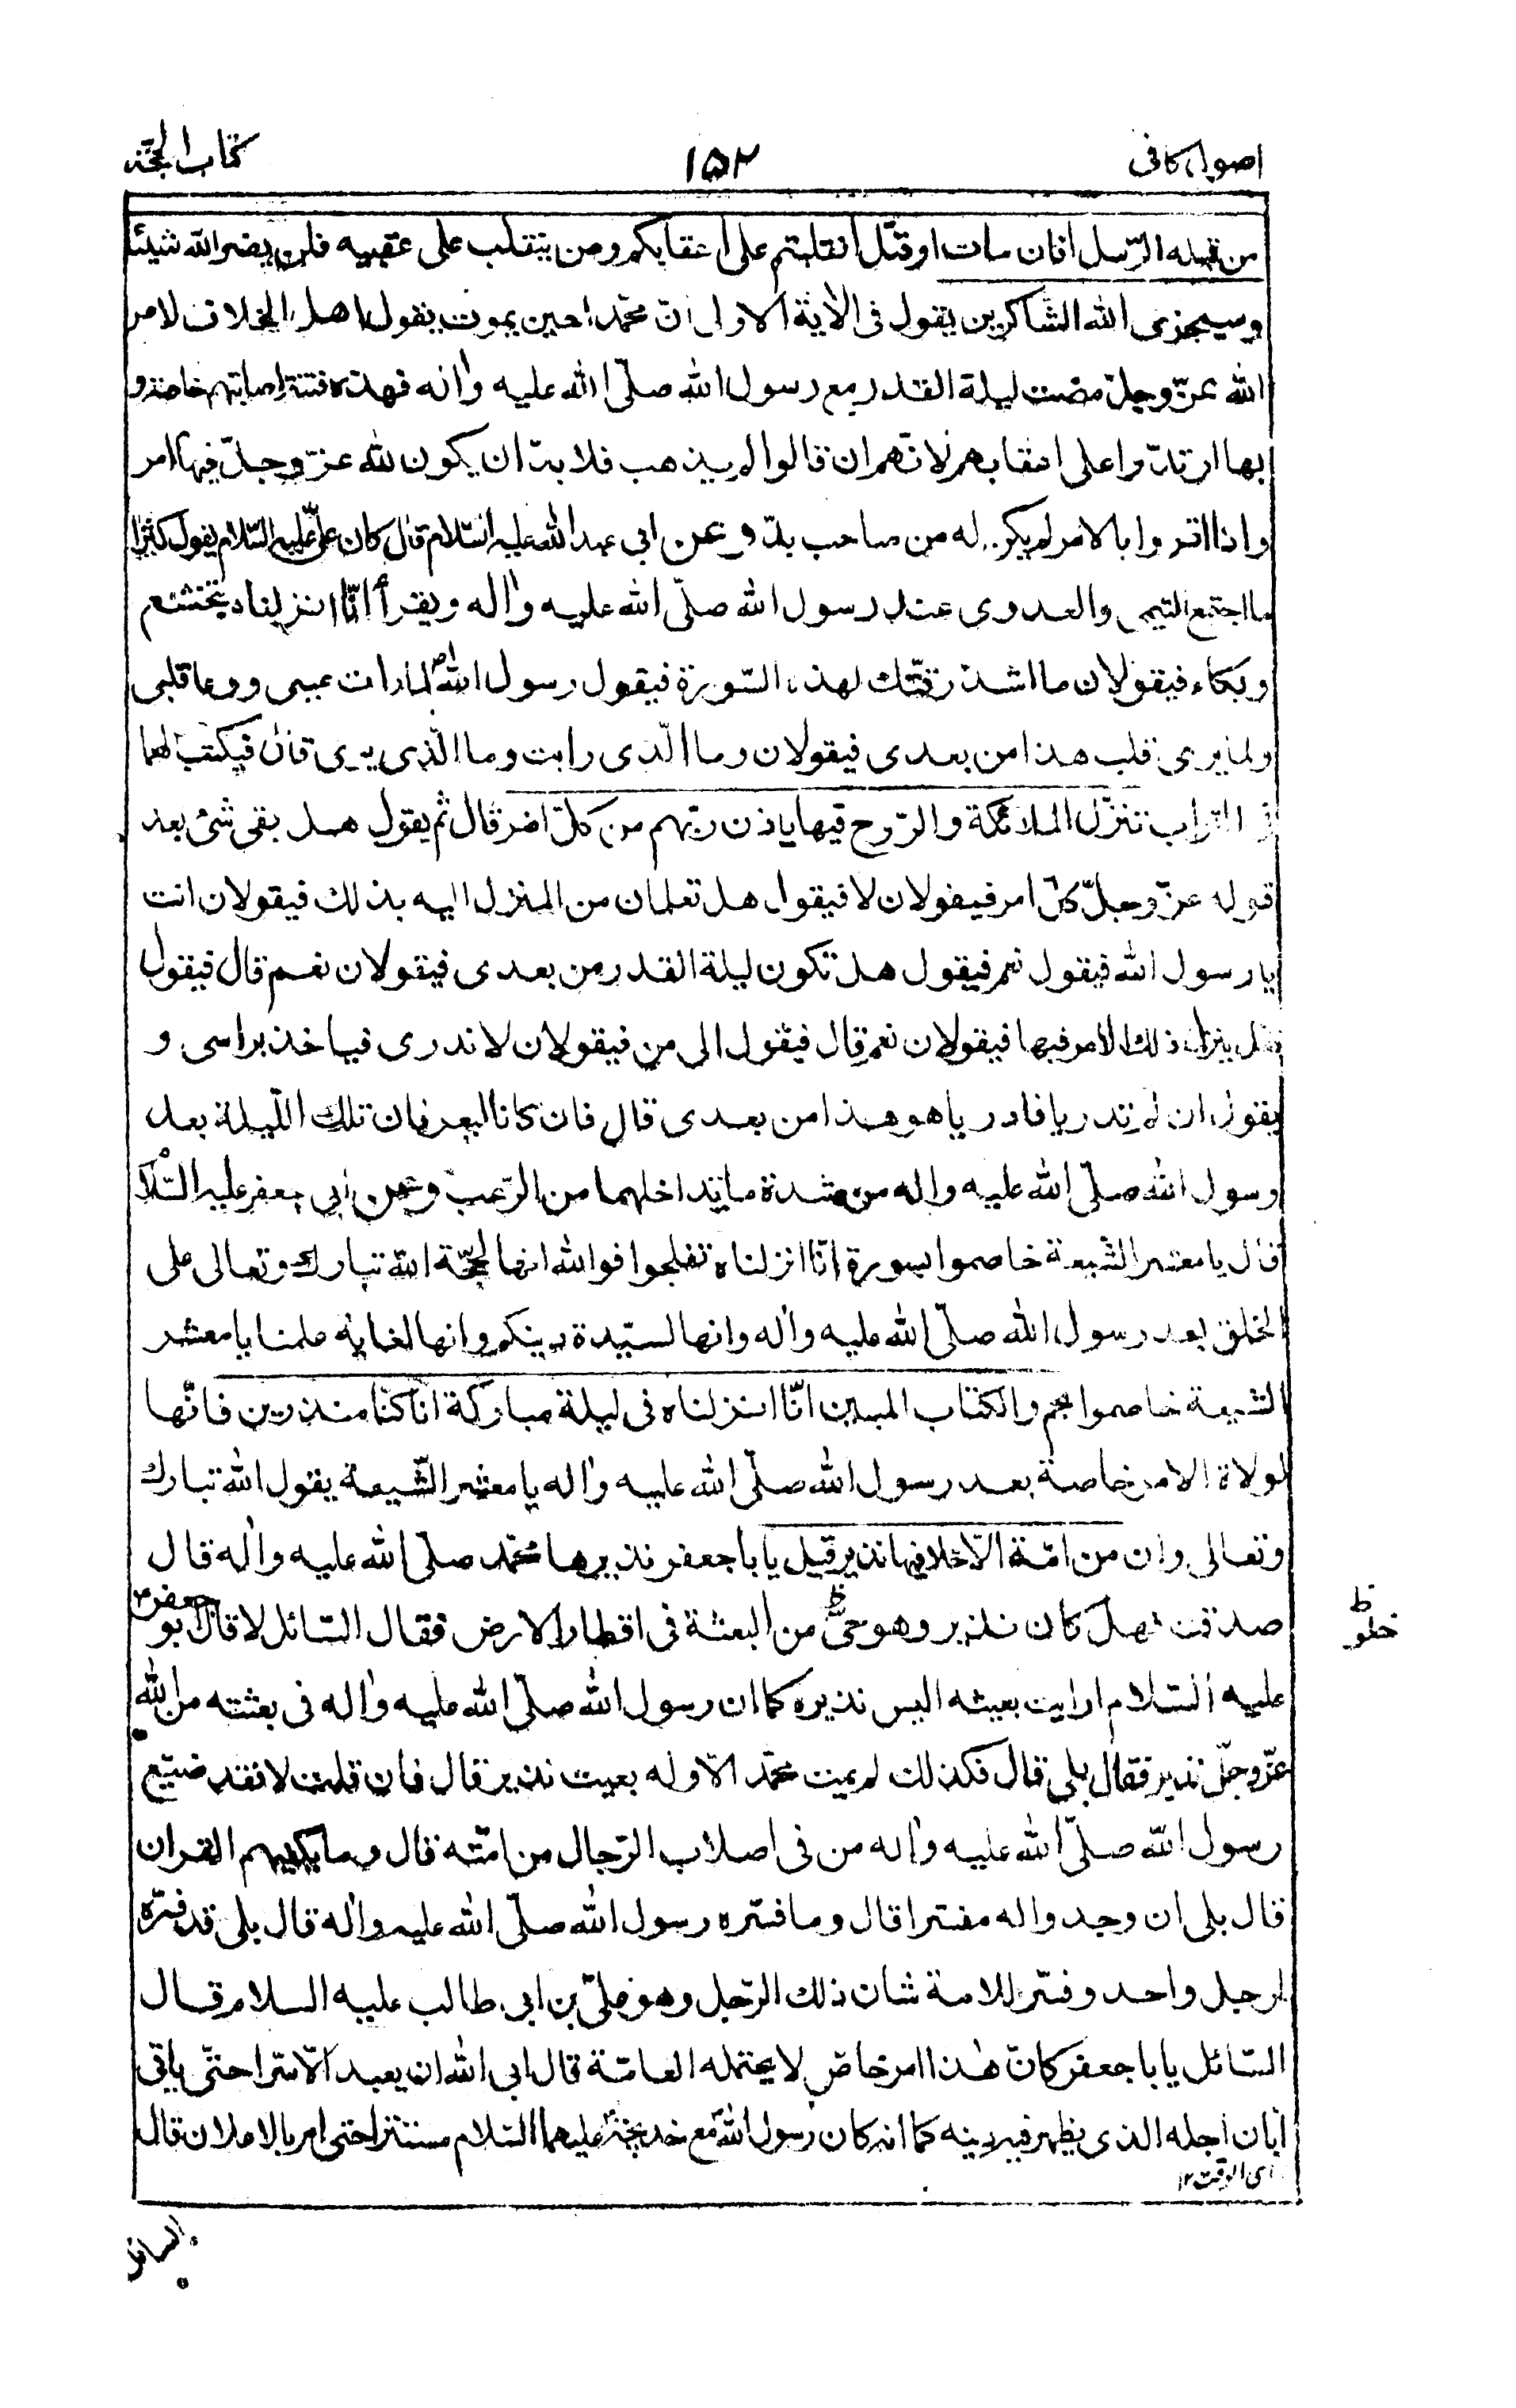 اصول کافی
۱۵۲
کتاب الحجّة
من قبله الرّسل افان مات او قتل انقلبتم علی اعقابکم ومن ینقلب علی عقبیه فلن یضر الله شیئا
وسیجزی الله الشاکرین یقول فی الاٰیة الاولی انّ محمّدا حین یموت یقول اهل الخلاف لامر
الله عزّ وجلّ مضت لیلة القدر مع رسول الله صلّی الله علیه واٰله فهذه فتنة اصابتهم خاصّة و
بها ارتدّوا علی اعقابهم لانّهم ان قالوا لم یذهب فلا بدّ ان یکون لله عزّ وجلّ فیها امر
واذا اقروا بالامر لم یکن له من صاحب بدّ وعن ابی عبد الله علیه السّلام قال کان علیّ علیه السّلام یقول کثیرا
ما اجتمع التیمی والعدوی عند رسول الله صلّی الله علیه واٰله ویقرأ انّا انزلناه بتخشّع
وبکاء فیقولان ما اشدّ رقّتک لهذه السّورة فیقول رسول الله ص لما رات عینی ووعا قلبی
ولما یری قلب هذا من بعدی فیقولان وما الّذی رایت وما الّذی یری قال فیکتب لهما
فی التراب تنزّل الملائکة والرّوح فیها باذن ربّهم من کلّ امر قال ثم یقول هل بقی شیٔ بعد
قوله عزّ وجلّ کلّ امر فیقولان لا فیقول هل تعلمان من المنزل الیه بذلک فیقولان انت
یا رسول الله فیقول نعم فیقول هل تکون لیلة القدر من بعدی فیقولان نعم قال فیقول
فهل ینزل ذلک الامر فیها فیقولان نعم قال فیقول الی من فیقولان لا ندری فیاخذ براسی و
یقول ان لم تدریا فادریا هو هذا من بعدی قال فان کانا لیعرفان تلک اللّیلة بعد
رسول الله صلّی الله علیه واٰله من شدة ما یتداخلهما من الرّعب وعن ابی جعفر علیه السّلام
قال یا معشر الشّیعة خاصموا بسورة انّا انزلناه تفلجوا فوالله انها لحجّة الله تبارک وتعالی علی
الخلق بعد رسول الله صلّی الله علیه واٰله وانها لسیّدة دینکم وانها لغایة علمنا یا معشر
الشیعة خاصموا بحم والکتاب المبین انّا انزلناه فی لیلة مبارکة انّا کنّا منذرین فانّها
لولاة الامر خاصة بعد رسول الله صلّی الله علیه واٰله یا معشر الشّیعة یقول الله تبارک
وتعالی وان من امّة الّا خلا فیها نذیر قیل یا ابا جعفر نذیرها محمّد صلّی الله علیه واٰله قال
صدقت فهل کان نذیر وهو حیّ من البعثة فی اقطار الارض فقال السّائل لا قال ابو جعفر
علیه السّلام ارایت بعیثه الیس نذیره کما ان رسول الله صلّی الله علیه واٰله فی بعثته من الله
عزّ وجلّ نذیر فقال بلی قال فکذلک لم یمت محمّد الّا وله بعیث نذیر قال فان قلت لا فقد ضیّع
رسول الله صلّی الله علیه واٰله من فی اصلاب الرّجال من امّته قال وما یکفیهم القران
قال بلی ان وجدوا له مفسّرا قال وما فسّره رسول الله صلّی الله علیه واٰله قال بلی قد فسّره
لرجل واحد وفسّر للامة شان ذلک الرّجل وهو علیّ بن ابی طالب علیه السلام قال
السّائل یا ابا جعفر کانّ هٰذا امر خاصّ لا یحتمله العامّة قال ابی الله ان یعبد الّا سرّا حتّی یاتی
ابّان اجله الذی یظهر فیه دینه کما انه کان رسول الله مع خدیجة علیهما السّلام مستترا حتی امر بالاعلان قال
ای الوقت ۱۲
السائل